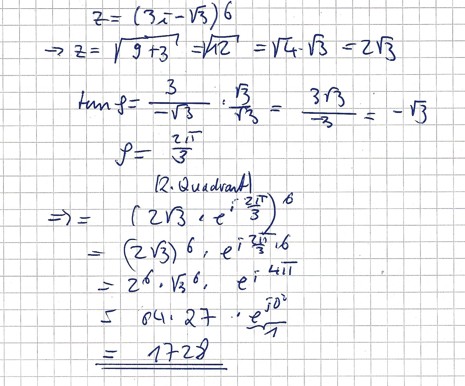 z = (3i - √3)6
→ z = √9+3 = √12 = √4·√3 = 2√3
tan φ = 3/-√3 · √3/√3 = 3√3/-3 = -√3
φ = 2π/3
(2. Quadrant)
⇒ = (2√3 · e^(i 2π/3))^6
= (2√3)^6 · e^(i 2π/3 · 6)
= 2^6 · √3^6 · e^(i 4π)
= 64 · 27 · e^(i0°) 1
= 1728